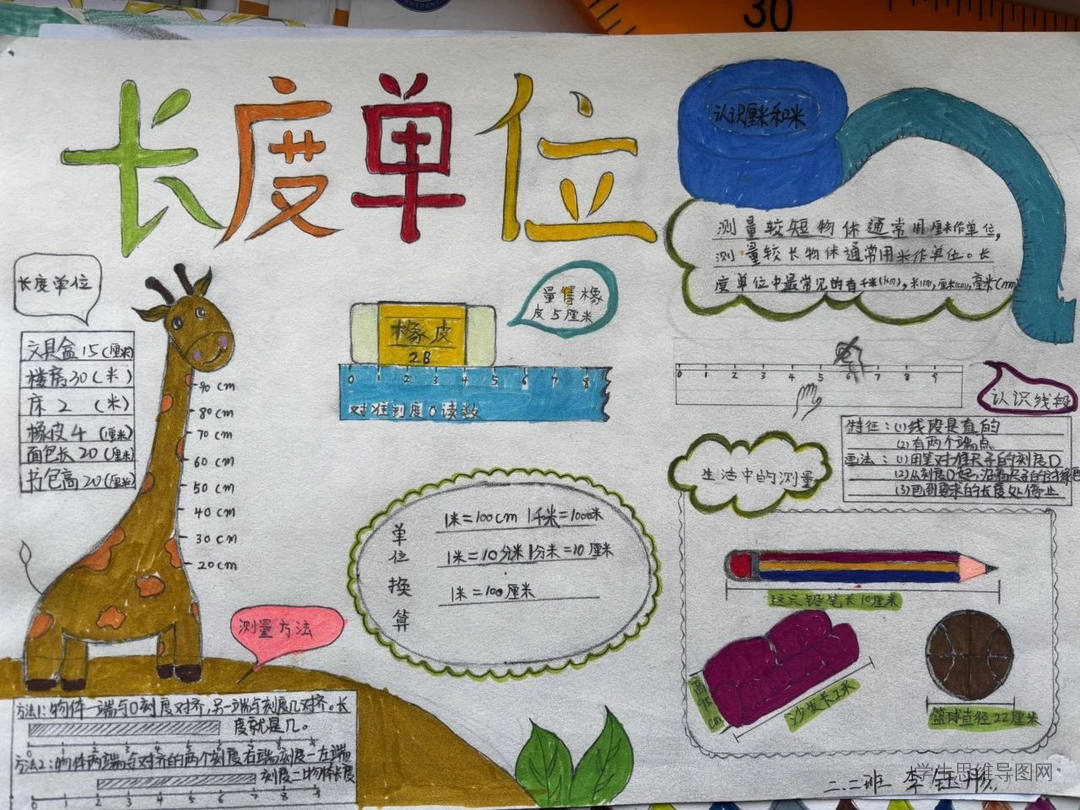 30
长度单位
认识厘米和米
测量较短物体通常用厘米作单位,
测量较长物体通常用米作单位。长
度单位中最常见的有千米(km),米(m,厘米(cm),毫米(mm)
长度单位
文具盒15(厘米)
楼房30(米)
床2 (米)
橡皮4 (厘米)
面包长20(厘米)
书包高20(厘米)
90 cm
80 cm
70 cm
60 cm
50 cm
40 cm
30 cm
20 cm
橡皮
2B
0 1 2 3 4 5 6 7 8
对准刻度0读数
量得橡
皮5厘米
0 1 2 3 4 5 6 7 8 9
认识线段
特征:(1)线段是直的
(2)有两个端点
画法:(1)用笔对准尺子的刻度0
(2)从刻度0起,沿着尺子的
(3)画到要求的长度处停止
生活中的测量
单位换算
1米=100cm 1千米=1000米
1米=10分米 1分米=10厘米
1米=100厘米
测量方法
方法1:物体一端与0刻度对齐,另一端与刻度几对齐。长
度就是几。
方法2:物体两端与对齐的两个刻度右端刻度-左端
刻度=物体长度
0 1 2 3 4 5 6 7 8 9
这只铅笔长10厘米
沙发长2米
篮球直径22厘米
二.二班 李钰彤
学生思维导图网